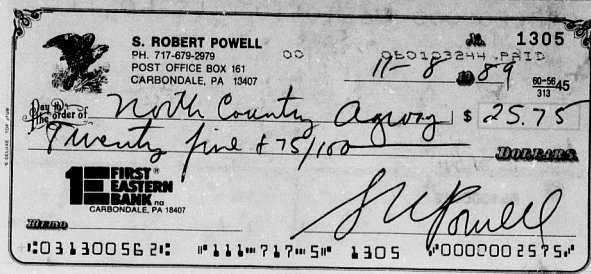 S. ROBERT POWELL
PH. 717-679-2979
POST OFFICE BOX 161
CARBONDALE, PA 13407
00
№ 1305
050103244 PAID
11-8 19 89
60-5645
313
Pay to the order of North Country Agway $ 25.75
Twenty five & 75/100 DOLLARS
FIRST®
EASTERN
BANK na
CARBONDALE, PA 18407
MEMO
S R Powell
⑆031300562⑆ ⑈111⑉717⑉5⑈ 1305 ⑈0000002575⑈